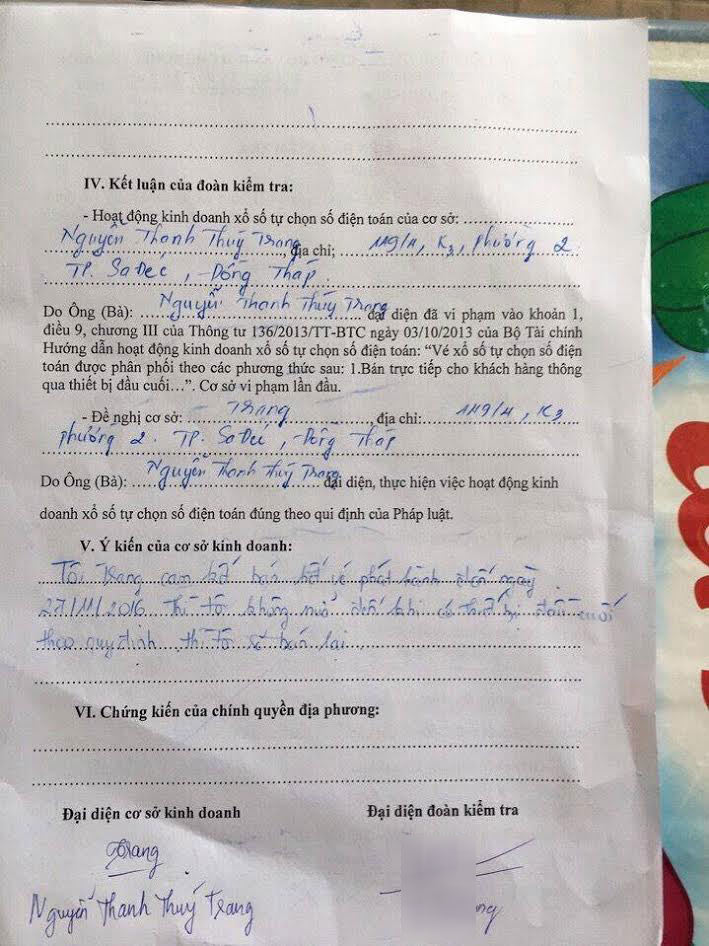 IV. Kết luận của đoàn kiểm tra:
- Hoạt động kinh doanh xổ số tự chọn số điện toán của cơ sở:
Nguyễn Thanh Thuý Trang, địa chỉ; 119/4, K3, phường 2
TP. SaĐéc, Đồng Tháp
Do Ông (Bà): Nguyễn Thanh Thuý Trang đại diện đã vi phạm vào khoản 1,
điều 9, chương III của Thông tư 136/2013/TT-BTC ngày 03/10/2013 của Bộ Tài chính
Hướng dẫn hoạt động kinh doanh xổ số tự chọn số điện toán: “Vé xổ số tự chọn số điện
toán được phân phối theo các phương thức sau: 1.Bán trực tiếp cho khách hàng thông
qua thiết bị đầu cuối…”. Cơ sở vi phạm lần đầu.
- Đề nghị cơ sở: Trang địa chỉ: 119/4, K3
phường 2. TP. SaĐéc, Đồng Tháp
Do Ông (Bà): Nguyễn Thanh Thuý Trang đại diện, thực hiện việc hoạt động kinh
doanh xổ số tự chọn số điện toán đúng theo qui định của Pháp luật.
V. Ý kiến của cơ sở kinh doanh:
Tôi Trang cam kết bán hết vé phát hành đến ngày
27/11/2016 thì tôi không đến khi có thiết bị đầu cuối
theo quy định thì tôi sẽ bán lại.
VI. Chứng kiến của chính quyền địa phương:
Đại diện cơ sở kinh doanh Đại diện đoàn kiểm tra
Trang
Nguyễn Thanh Thuý Trang